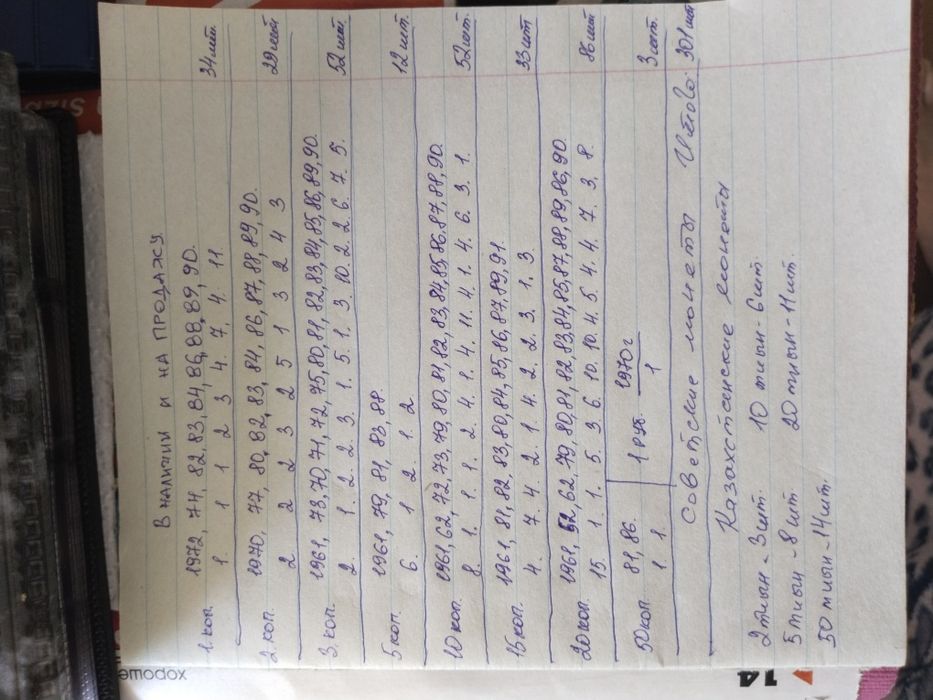 В НАЛИЧИИ И НА ПРОДАЖУ.
1. коп. 1972, 74, 82, 83, 84, 86, 88, 89, 90. 34шт
1. 1 1 2 3 4. 7. 4. 11
2. коп 1970, 77, 80, 82, 83, 84, 86, 87, 88, 89, 90. 29шт
2 2 2 3 2 5 1 3 2 4 3
3. коп. 1961, 73, 70, 71, 72, 75, 80, 81, 82, 83, 84, 85, 86, 89, 90. 52 шт
2. 1. 2. 2. 3. 1. 5. 1. 3. 10. 2. 2. 6. 7. 5.
5 коп. 1961, 79, 81, 83, 88. 12 шт.
6. 1 2. 1. 2
10 коп. 1961, 62, 72, 73, 79, 80, 81, 82, 83, 84, 85, 86, 87, 88, 90. 52 шт.
8. 1. 1. 1. 2. 4. 1. 4. 11. 4. 1. 4. 6. 3. 1.
15 коп. 1961, 81, 82, 83, 80, 84, 85, 86, 87, 89, 91. 33 шт
4. 7. 4. 2. 1. 4. 2. 2. 3. 1. 3.
20 коп. 1961, 52, 62, 79, 80, 81, 82, 83, 84, 85, 87, 88, 89, 86, 90. 86 шт
15. 1. 1. 5. 3. 6. 10. 10. 4. 5. 4. 4. 7. 3. 8.
50 коп. 81, 86. 1 руб. 1970г 3 шт.
1 1. 1
советские монеты Итого: 301 шт
Казахстанские монеты
2 тиын - 3 шт. 10 тиын - 6 шт.
5 тиын - 8 шт 20 тиын - 11 шт.
50 тиын - 14 шт.
14